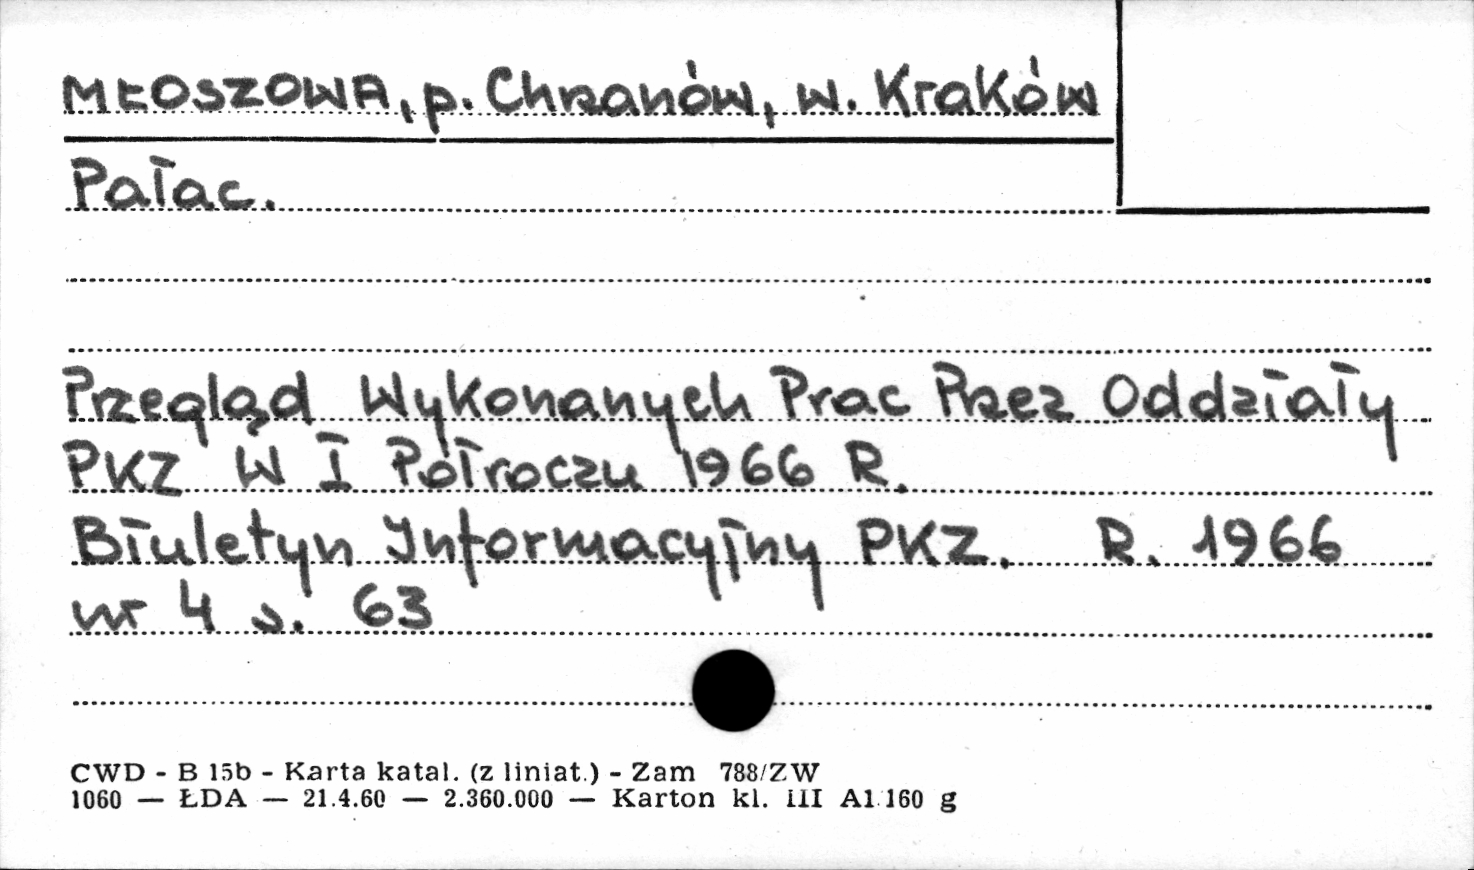 MŁOSZOWA, p. Chrzanów, w. Kraków
Pałac.
Przegląd Wykonanych Prac Przez Oddziały
PKZ W I Półroczu 1966 R.
Biuletyn Informacyjny PKZ. R. 1966
nr 4 s. 63
CWD - B 15b - Karta katal. (z liniat.) - Zam 788/ZW
1060 — ŁDA — 21.4.60 — 2.360.000 — Karton kl. III A1 160 g